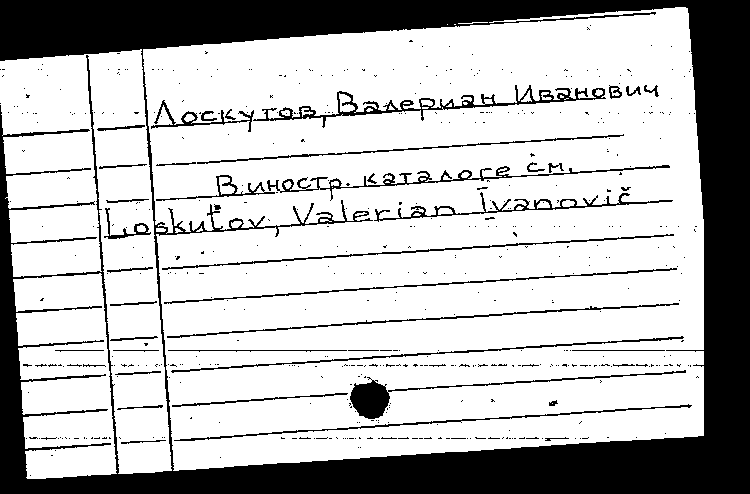 Лоскутов, Валериан Иванович
В иностр. каталоге см.
Loskutov, Valerian Ivanovič